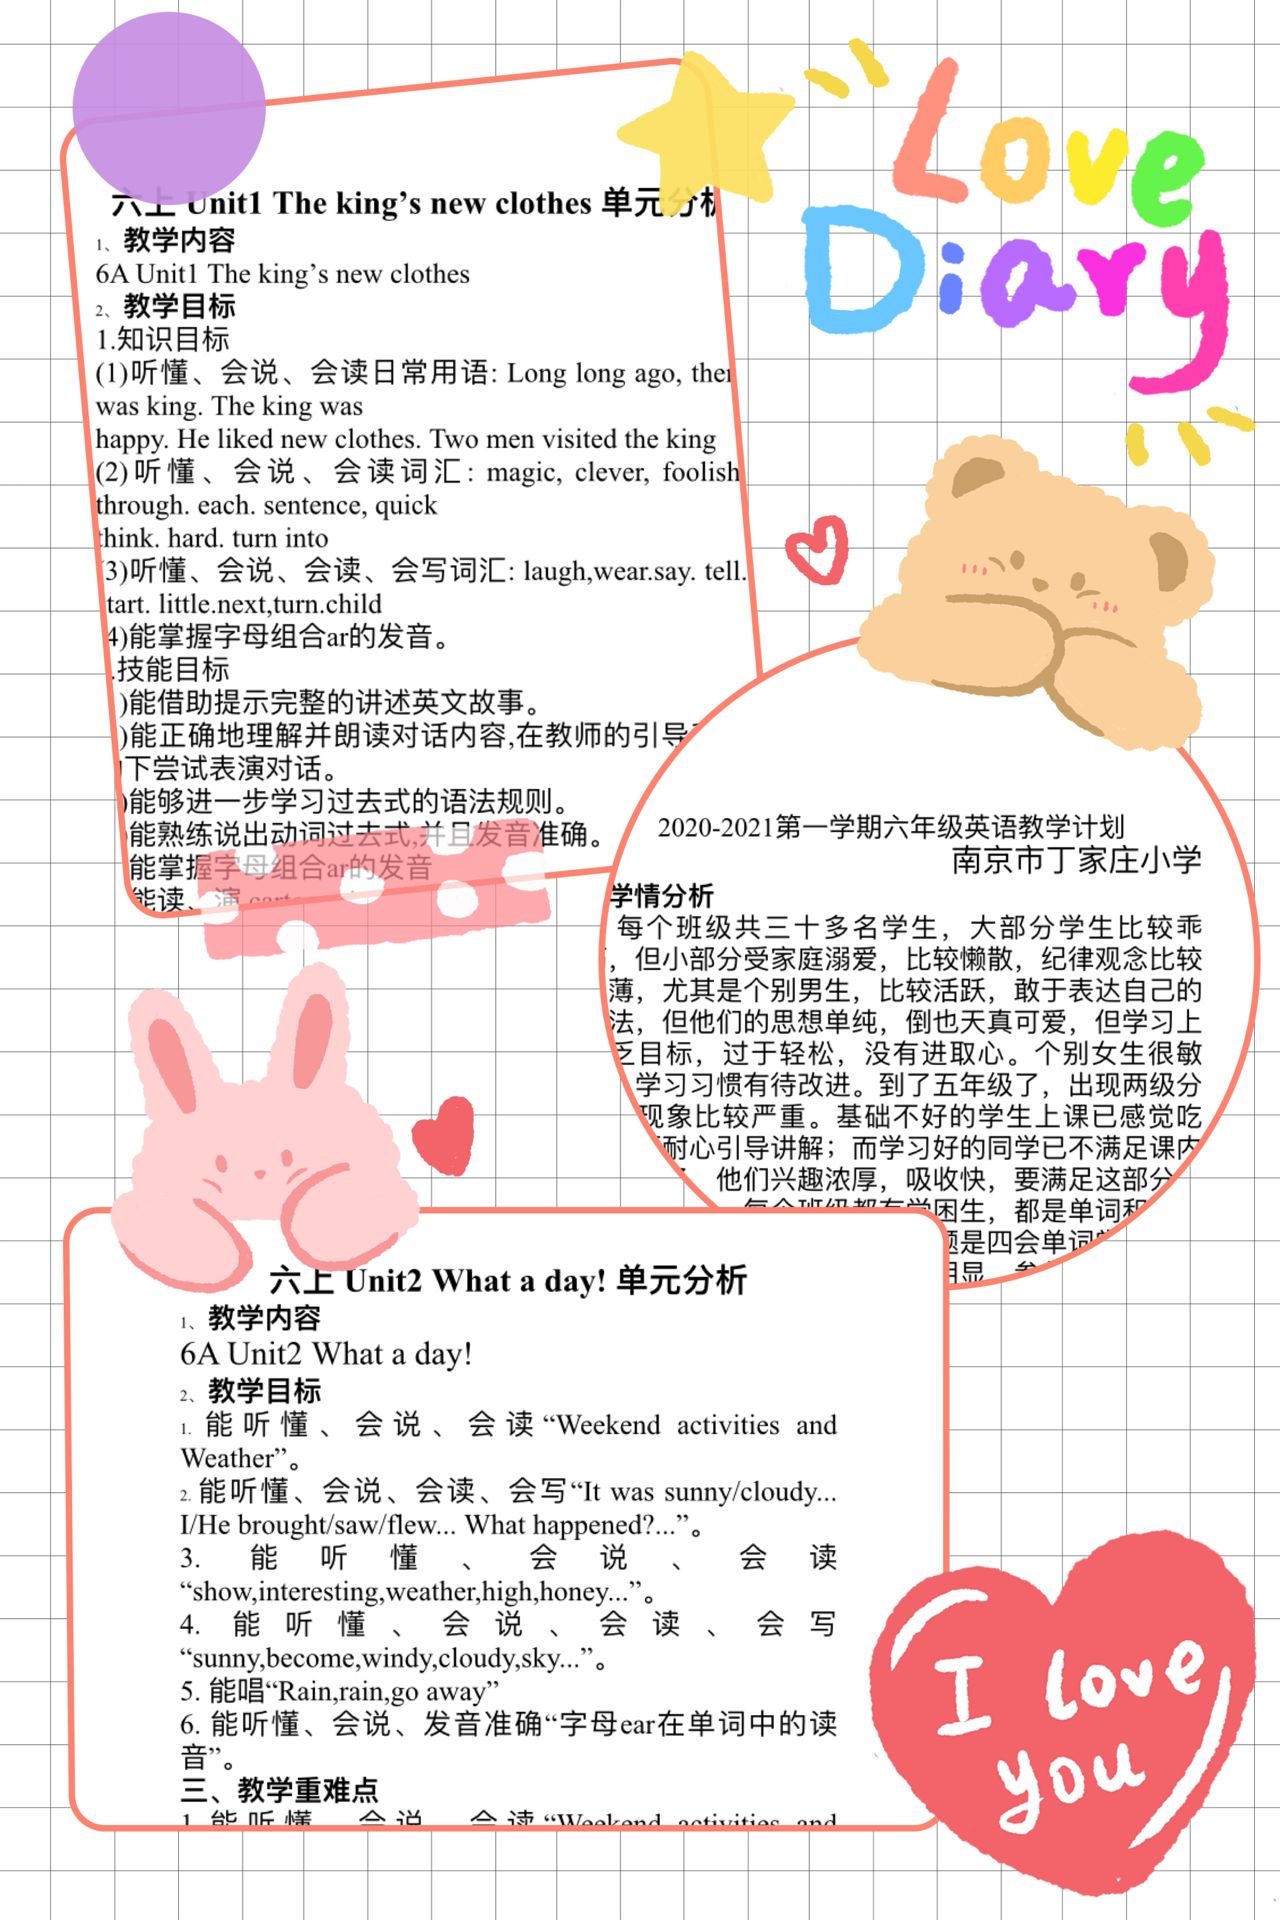 Love
Diary
六上 Unit1 The king’s new clothes 单元分析
1、教学内容
6A Unit1 The king’s new clothes
2、教学目标
1.知识目标
(1)听懂、会说、会读日常用语: Long long ago,
was king. The king was
happy. He liked new clothes. Two men visited the king
(2)听懂、会说、会读词汇: magic, clever, foolish
through. each. sentence, quick
think. hard. turn into
3)听懂、会说、会读、会写词汇: laugh,wear.say. tell.
tart. little.next,turn.child
4)能掌握字母组合ar的发音。
.技能目标
)能借助提示完整的讲述英文故事。
)能正确地理解并朗读对话内容,在教师的引导
下尝试表演对话。
)能够进一步学习过去式的语法规则。
)能熟练说出动词过去式,并且发音准确。
能掌握字母组合ar的发音
能读、演
2020-2021第一学期六年级英语教学计划
南京市丁家庄小学
学情分析
每个班级共三十多名学生，大部分学生比较乖
，但小部分受家庭溺爱，比较懒散，纪律观念比较
薄，尤其是个别男生，比较活跃，敢于表达自己的
法，但他们的思想单纯，倒也天真可爱，但学习上
乏目标，过于轻松，没有进取心。个别女生很敏
学习习惯有待改进。到了五年级了，出现两级分
现象比较严重。基础不好的学生上课已感觉吃
耐心引导讲解；而学习好的同学已不满足课内
他们兴趣浓厚，吸收快，要满足这部分
每个班级都有学困生，都是单词和
题是四会单词
明显
六上 Unit2 What a day! 单元分析
1、教学内容
6A Unit2 What a day!
2、教学目标
1. 能听懂、会说、会读“Weekend activities and
Weather”。
2. 能听懂、会说、会读、会写“It was sunny/cloudy...
I/He brought/saw/flew... What happened?...”。
3. 能听懂、会说、会读
“show,interesting,weather,high,honey...”。
4. 能听懂、会说、会读、会写
“sunny,become,windy,cloudy,sky...”。
5. 能唱“Rain,rain,go away”
6. 能听懂、会说、发音准确“字母ear在单词中的读
音”。
三、教学重难点
1. 能听懂、会说、会读“Weekend activities and
I love
you